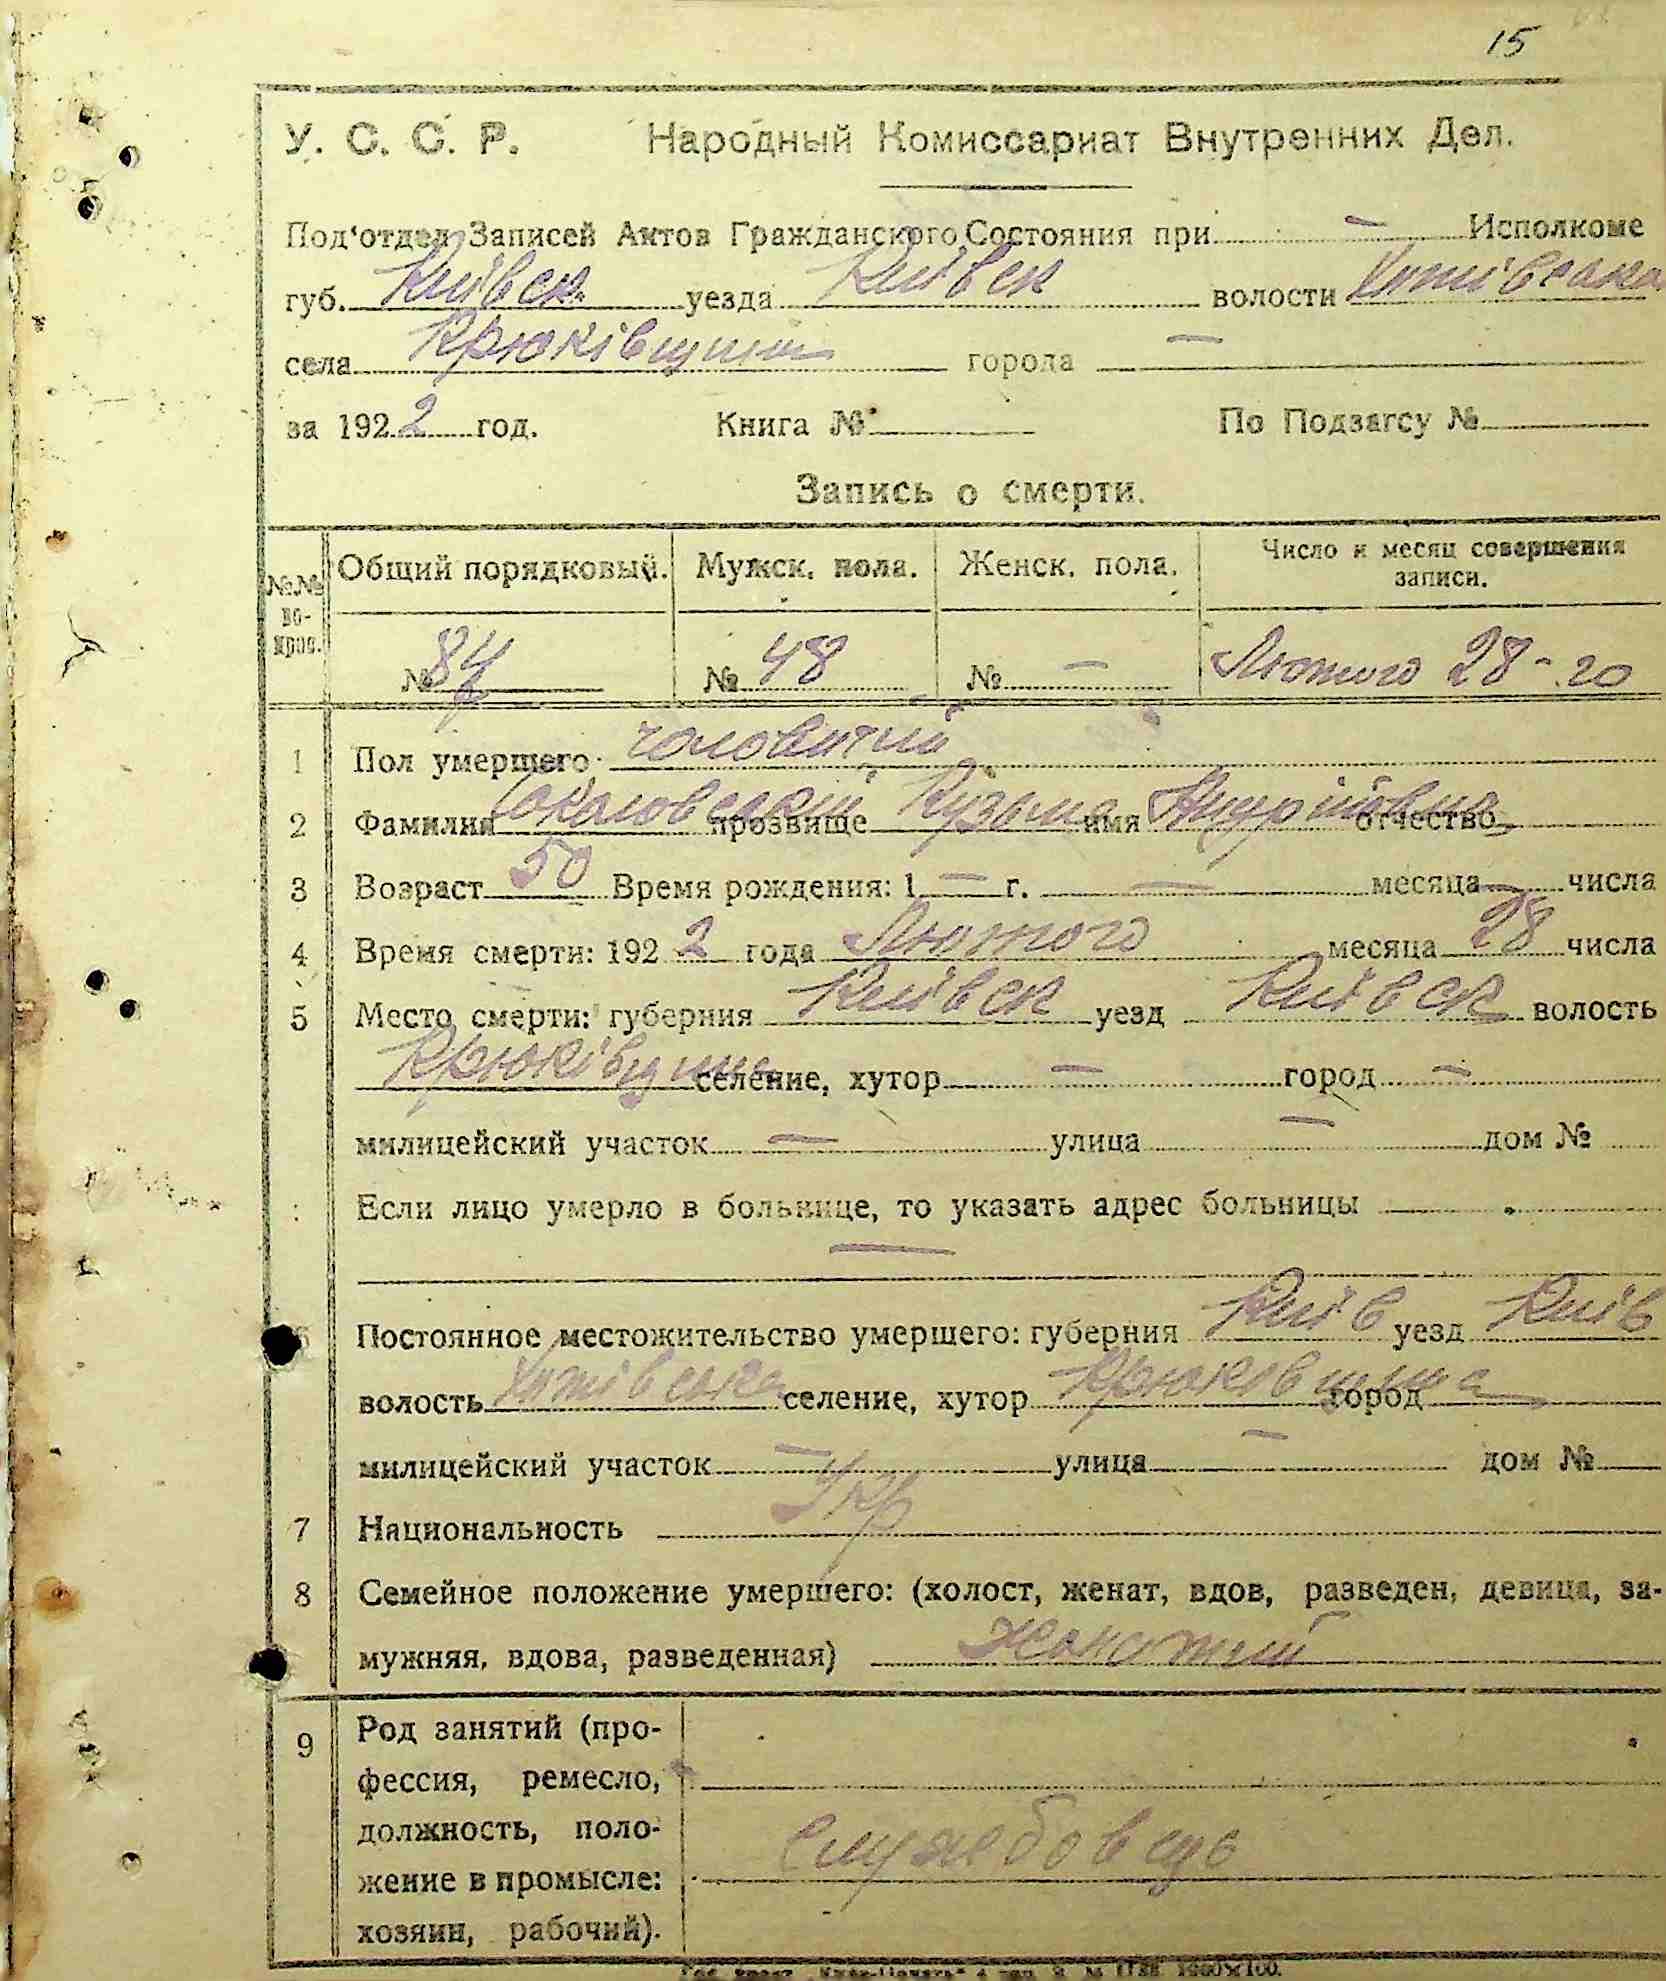 15
У. С. С. Р. Народный Комиссариат Внутренних Дел.
Под'отдел Записей Актов Гражданского Состояния при — Исполкоме
губ. Київск. уезда Київск волости Хотівська
села Крюківщина города —
за 1922 год. Книга № По Подзагсу №
Запись о смерти.
№№ вопрос. Общий порядковый. Мужск. пола. Женск. пола. Число и месяц совершения записи.
№ 84 № 48 № — Лютого 28-го
1 Пол умершего чоловичий
2 Фамилия Соколовський прозвище Кузьма имя отчество
3 Возраст 50 Время рождения: 1 — г. — месяца — числа
4 Время смерти: 1922 года Лютого месяца 28 числа
5 Место смерти: губерния Київск уезд Київск волость
Крюківщина селение, хутор — город —
милицейский участок — улица — дом №
Если лицо умерло в больнице, то указать адрес больницы
—
6 Постоянное местожительство умершего: губерния Київ уезд Київ
волость Хотівська селение, хутор Крюковщина город
милицейский участок — улица — дом №
7 Национальность Укр
8 Семейное положение умершего: (холост, женат, вдов, разведен, девица, за-
мужняя, вдова, разведенная) жонатий
9 Род занятий (про-
фессия, ремесло,
должность, поло-
жение в промысле:
хозяин, рабочий).
службовець